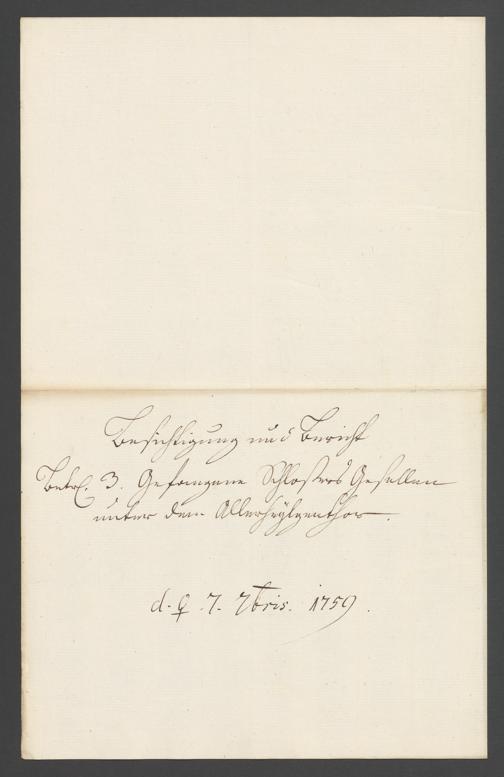 Besichtigung und Bericht
Betr. 3. Gefangene Schlossers Gesellen
unter dem Allerheylgenthor.
d. ♀ 7. 7bris. 1759.